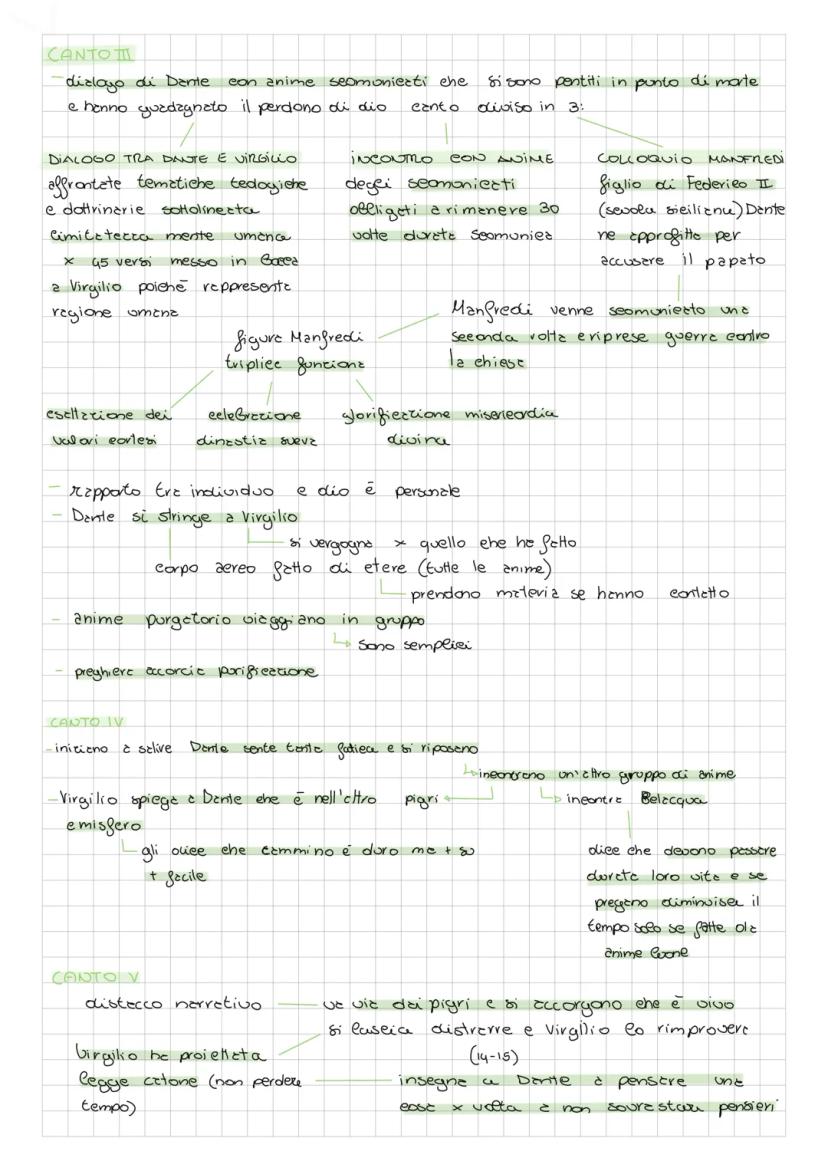 CANTO III
- dialogo di Dante con anime scomunicati che si sono pentiti in punto di morte
e hanno guadagnato il perdono di dio canto diviso in 3:
DIALOGO TRA DANTE E VIRGILIO
affrontate tematiche teologiche
e dottrinarie sottolineata
limitatezza mente umana
x 45 versi messo in bocca
a Virgilio poichē rappresenta
ragione umana
INCONTRO CON ANIME
degli scomunicati
obbligati a rimanere 30
volte durata scomunica
COLLOQUIO MANFREDI
figlio di Federico II
(scuola siciliana) Dante
ne approfitta per
accusare il papato
Manfredi venne scomunicato una
seconda volta e riprese guerra contro
la chiesa
figura Manfredi
triplice funziona
esaltazione dei
valori cortesi
celebrazione
dinastia sueva
glorificazione misericordia
divina
- rapporto tra individuo e dio ē personale
- Dante si stringe a Virgilio
si vergogna x quello che ha fatto
corpo aereo fatto di etere (tutte le anime)
prendono materia se hanno contatto
- anime purgatorio viaggiano in gruppo
sono semplici
- preghiera accorcia purificazione
CANTO IV
- iniziano a salire Dante sente tanta fatica e si riposano
incontrano un'altro gruppo di anime
- Virgilio spiega a Dante che ē nell'altro
emisfero
pigri
incontra Belacqua
gli dice che cammino ē duro ma + su
+ facile
dice che devono passare
durata loro vita e se
pregano diminuisce il
tempo solo se fatte da
anime buone
CANTO V
distacco narrativo
va via dai pigri e si accorgono che ē vivo
si lascia distrarre e Virgilio lo rimprovera
(14-15)
Virgilio ha proiettata
legge catone (non perdere
tempo)
insegna a Dante a pensare una
cosa x volta a non sovrastare pensieri